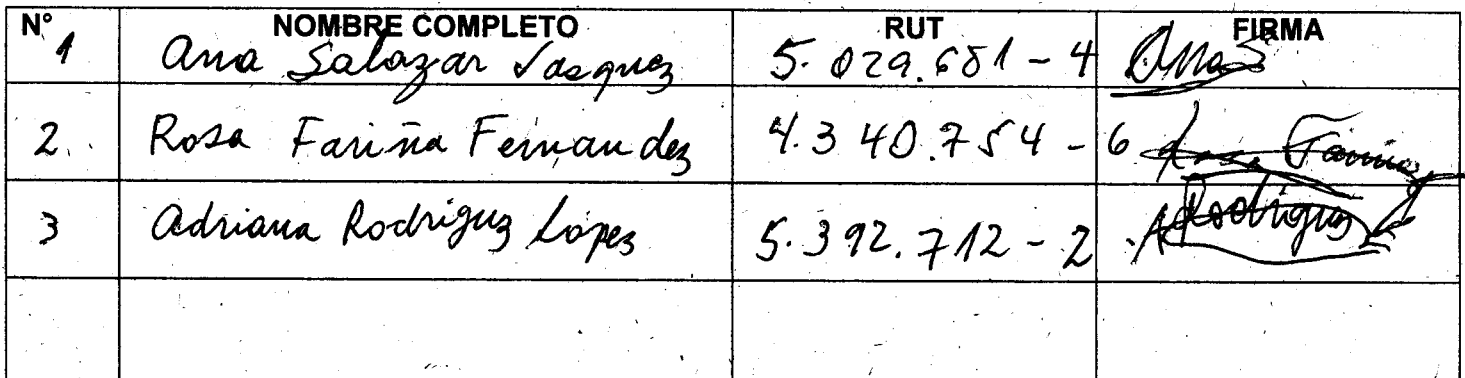 N° NOMBRE COMPLETO RUT FIRMA
1 Ana Salazar Vasquez 5.029.681-4 Ana S
2. Rosa Fariña Fernandez 4.340.754-6 Rosa Fariña
3 Adriana Rodriguz López 5.392.712-2 A Rodriguz